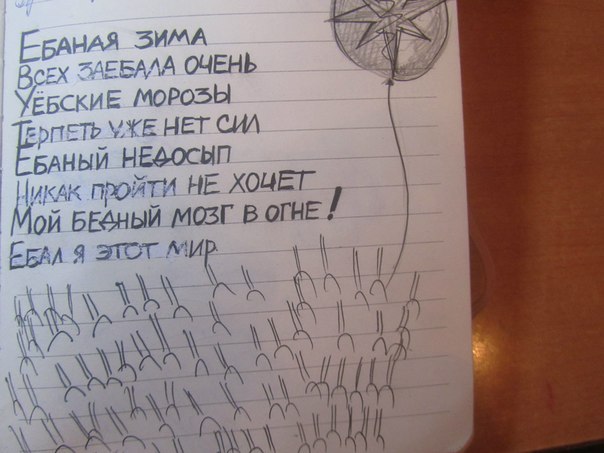 Ебаная зима
Всех заебала очень
Уёбские морозы
Терпеть уже нет сил
Ебаный недосып
Никак пройти не хочет
Мой бедный мозг в огне!
Ебал я этот мир